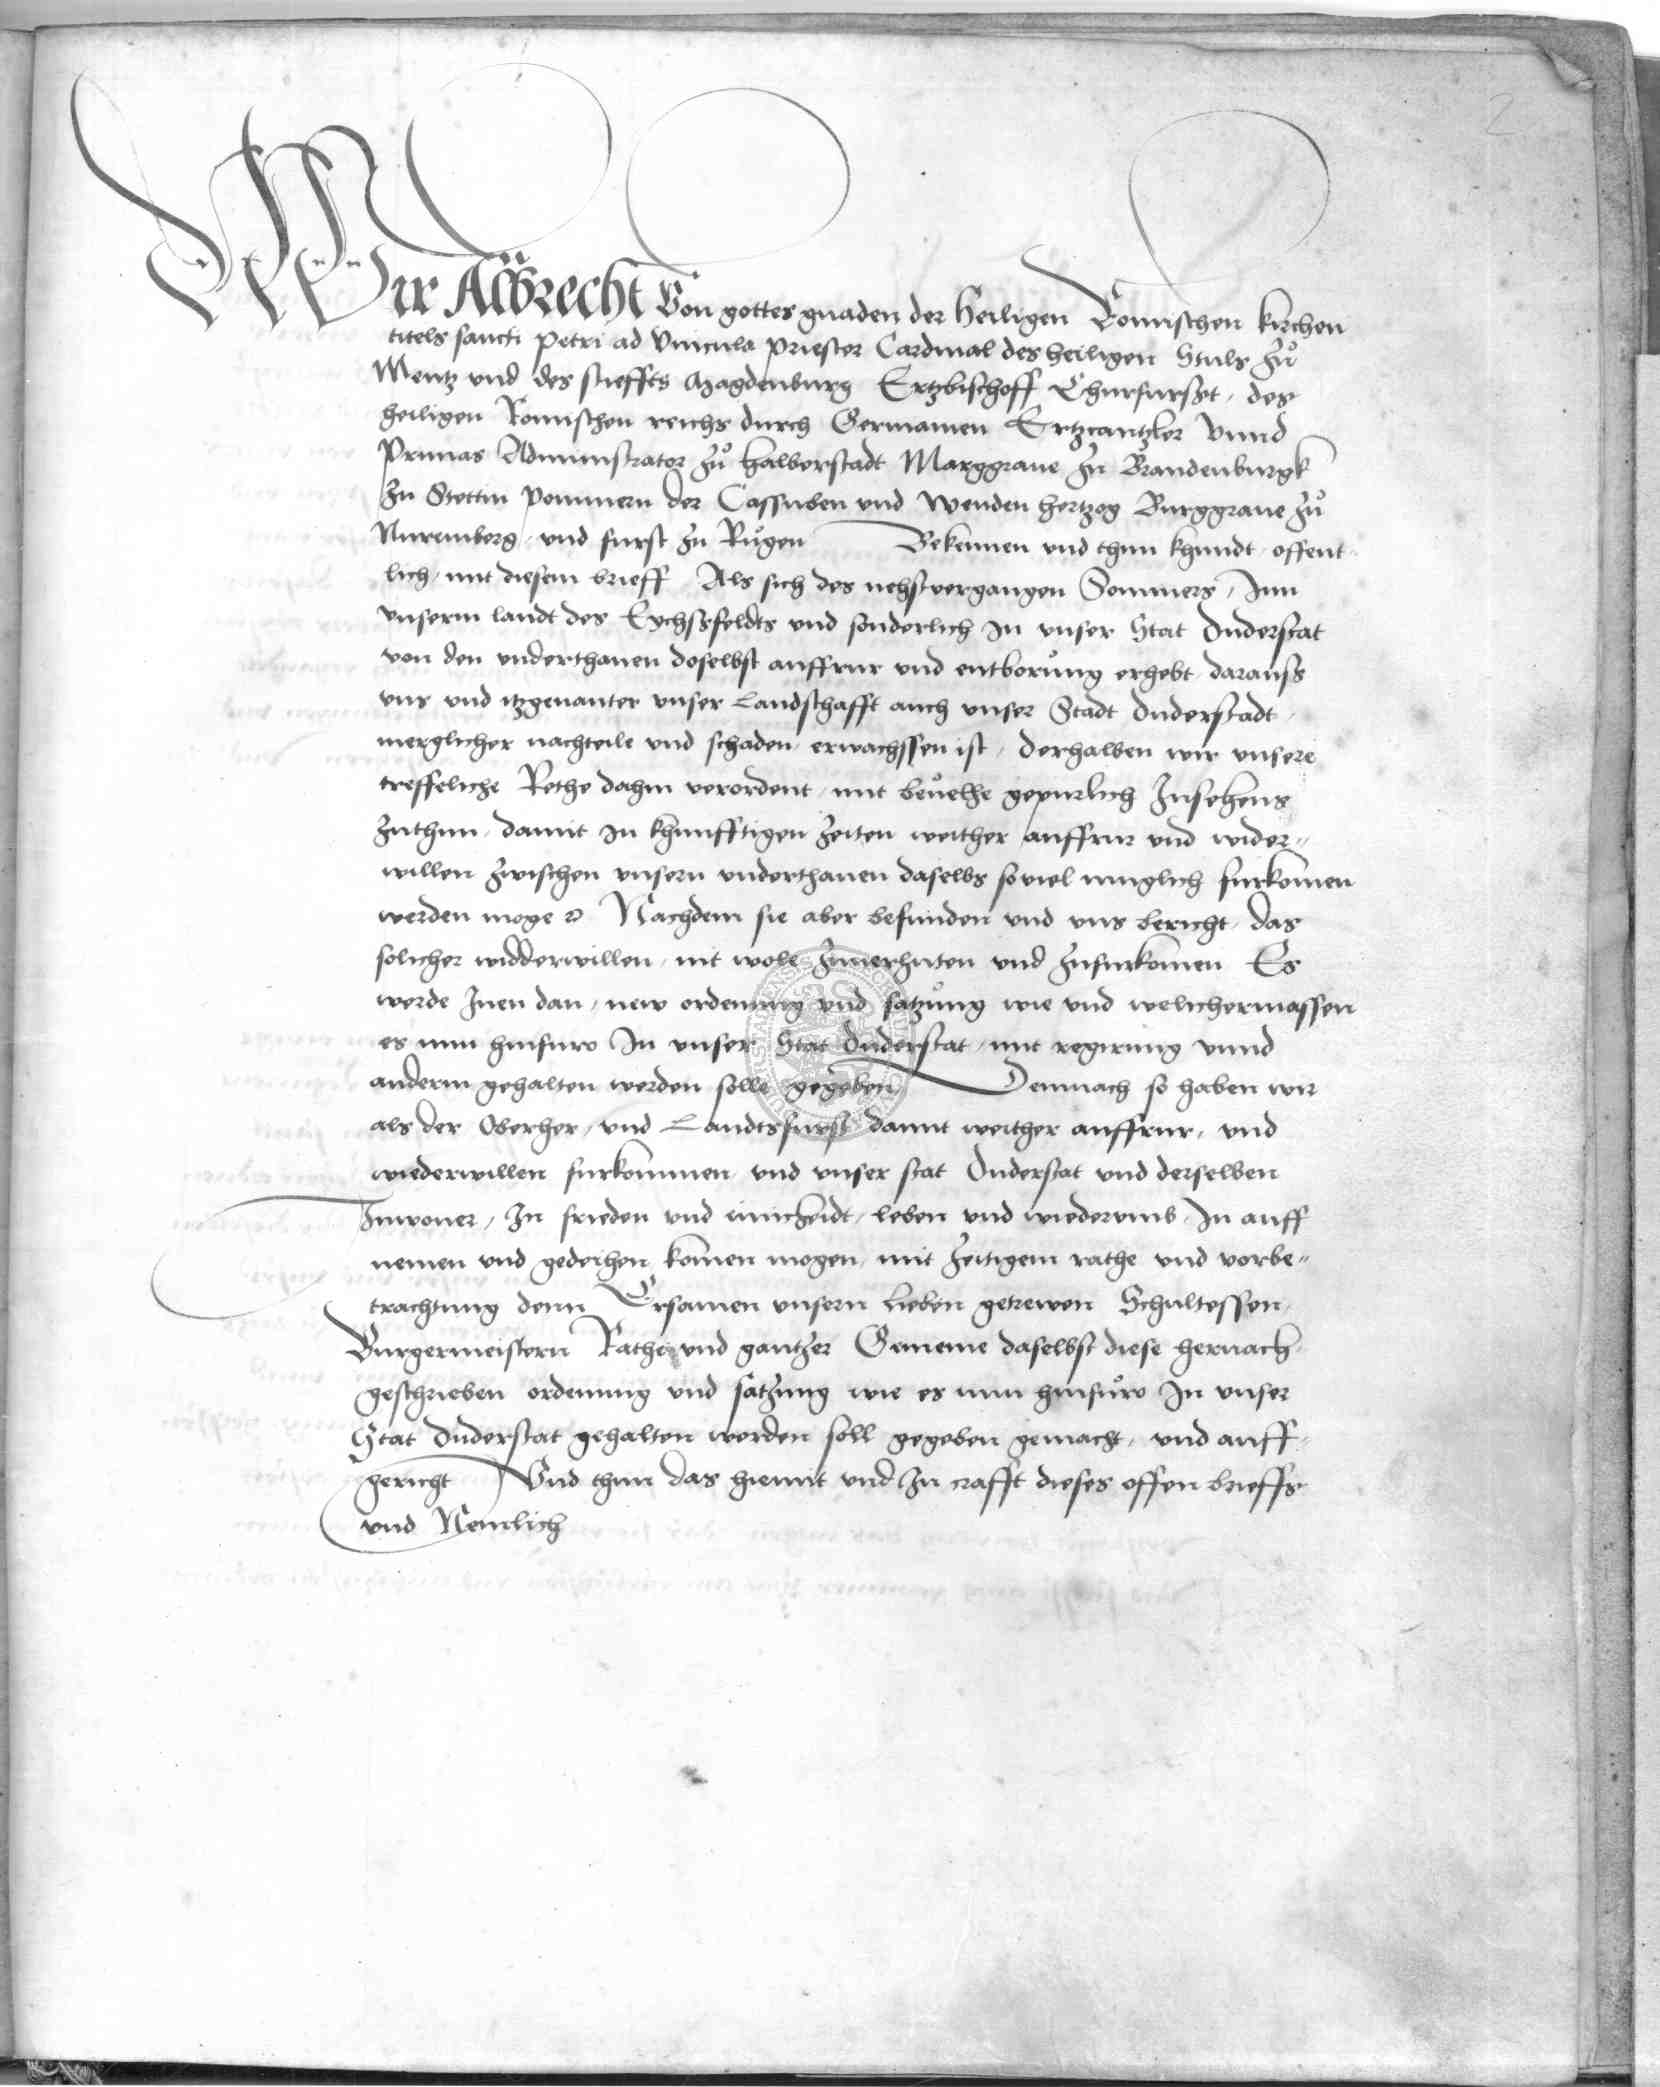 2
Wir Albrecht Von gottes gnaden der Heiligen Romischen kirchen
titels sancti Petri ad Vincula priester Cardinal des heiligen Stuls zů
Mentz vnd des stieffts Magdenburg Ertzbischoff Churfurst, des
heiligen Romischen reichs durch Germanien Ertzcantzler Vnnd
Primas Administrator zů halberstadt Marggraue zu Brandenburgk
zu Stettin pommern der Cassuben vnd Wenden hertzog Burggraue zů
Nuremberg, vnd furst zu Růgen Bekennen vnd thun khundt, offent
lich, mit diesem brieff Als sich des nehstvergangen Sommers, Inn
vnserm landt des Eychssfeldts vnd sonderlich in vnser Stat Duderstat
von den vnderthanen doselbst auffrur vnd entborůng erhebt darauss
vns vnd itzgenanter vnser Landschafft auch vnser Stadt Duderstadt,
merglicher nachteile vnd schaden, erwachssen ist, derhalben wir vnsere
treffeliche Rethe dahin verordent, mit beuelhe gepurlich Insehens
zuthun, damit in khunfftigen zeiten weither auffrur vnd wider-
willen zwischen vnsern vnderthanen daselbs souiel muglich furkomen
werden moge Nachdem sie aber befunden vnd vns bericht, das
solicher widderwillen, nit wole zuuerhuten vnd zufurkomen Es
werde Inen dan, new ordenung vnd satzůng wie vnd welichermassen
es nun hinfuro In vnser Stat Duderstat, mit regirung vnnd
anderm gehalten werden solle gegeben Demnach so haben wir
als der Oberher, vnd Landtsfurst damit weither auffrur, vnd
wiederwillen furkommen, vnd vnser stat Duderstat vnd derselben
Inwoner, In frieden vnd einickeidt, leben vnd wiederumb, In auff
nemen vnd gedeihen komen mogen, mit zeitigem rathe vnd vorbe-
trachtung denn Ersamen vnsern lieben getrewen Schultessen,
Burgermeistern Rathe vnd gantzer Gemeine daselbst diese hernach
geschrieben ordenung vnd satzung wie es nun hinfůro In vnser
Stat Duderstat gehalten werden soll gegeben gemacht, vnd auff-
gericht Vnd thun das hiemit vnd In crafft dieses offen brieffs
vnd Nemlich